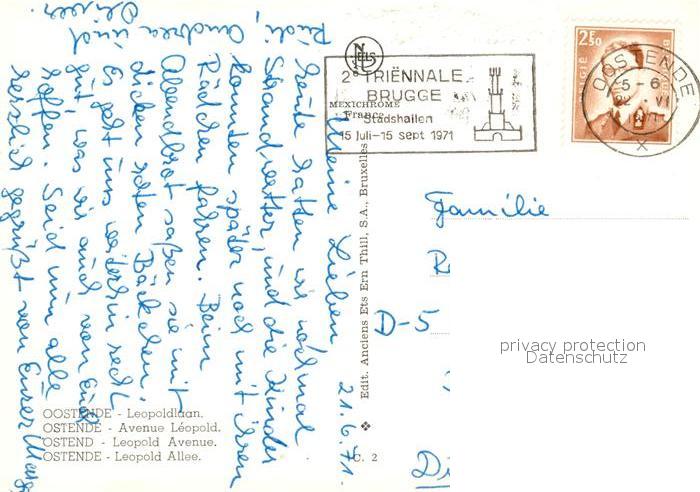 Meine Lieben! 21.6.71.
heute hatten wir nochmal
Strandwetter, und die Kinder
konnten später noch mit ihren
Rädchen fahren. Beim
Abendbrot saßen sie mit
dicken roten Bäckchen.
Es geht uns weiterhin recht
gut, was wir auch von Euch
hoffen. Seid nun alle
herzlich gegrüßt von Eurer
Rudi,
Andrea und
2e TRIËNNALE
BRUGGE
Stadshallen
15 juli-15 sept 1971
NELS
MEXICHROME
France
2F50
BELGIË
OOSTENDE
5-6
VI
1971
Edit. Anciens Ets Ern Thill, S.A., Bruxelles
Familie
D-5
privacy protection
Datenschutz
OOSTENDE - Leopoldlaan.
OSTENDE - Avenue Léopold.
OSTEND - Leopold Avenue.
OSTENDE - Leopold Allee.
C. 2